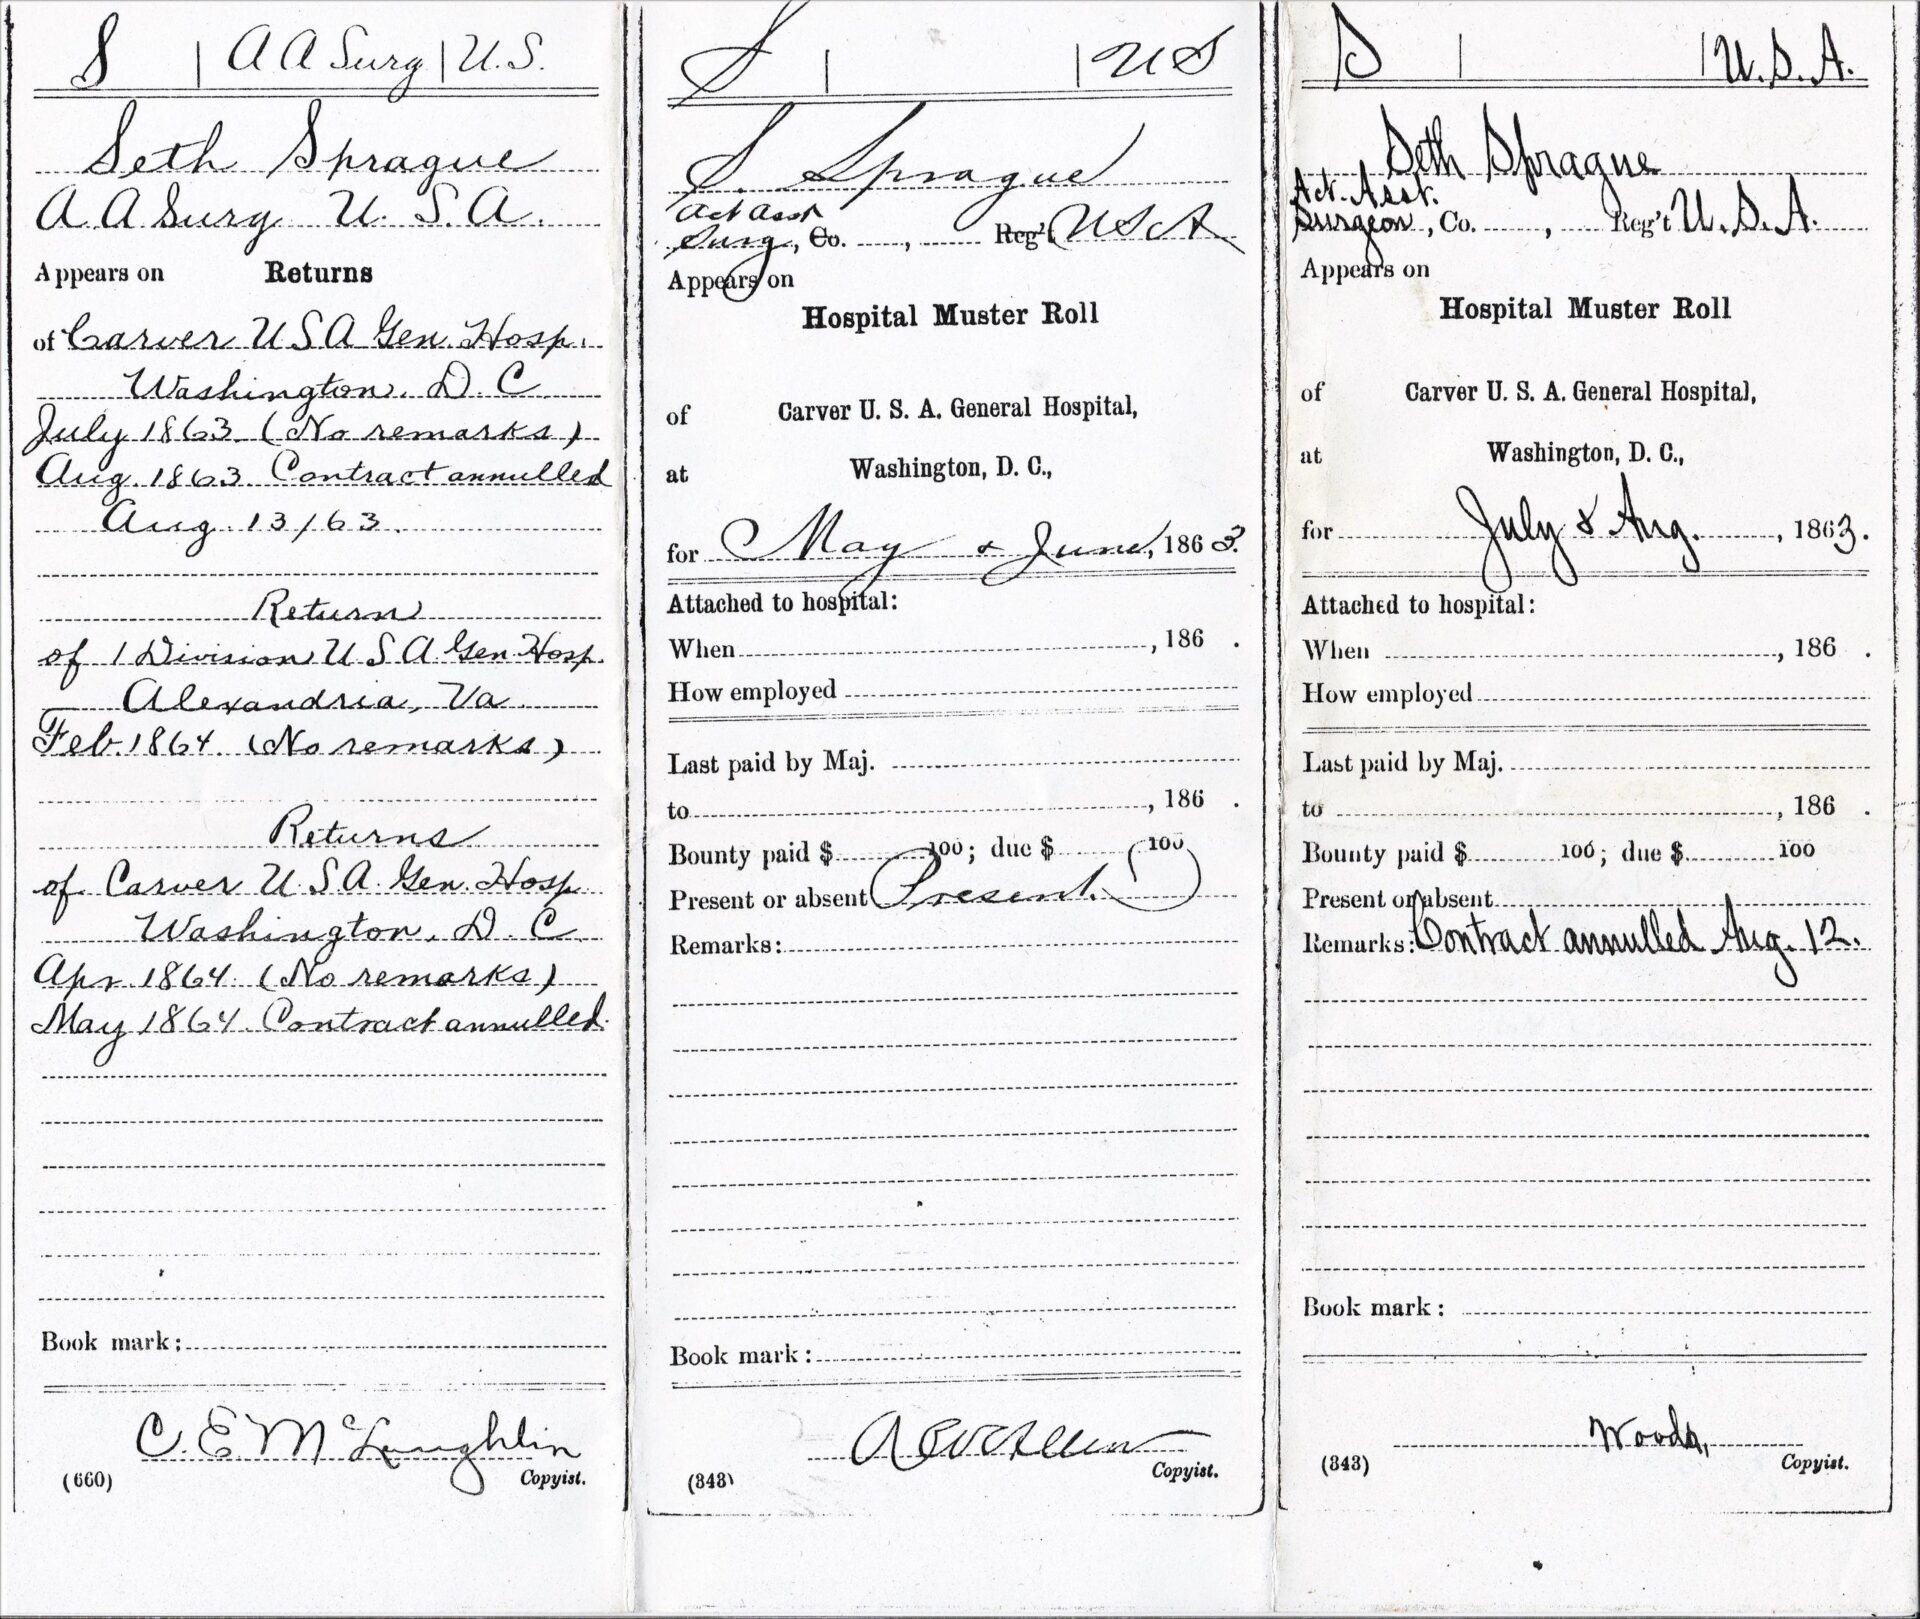 S | A A Surg | U.S.
Seth Sprague
A A Surg U. S. A.
Appears on Returns
of Carver U S A Gen. Hosp.
Washington, D. C
July 1863 (No remarks)
Aug. 1863 Contract annulled
Aug. 13/63.
Return
of 1 Division U S A Gen Hosp.
Alexandria, Va
Feb. 1864 (No remarks)
Returns
of Carver U S A Gen. Hosp
Washington, D. C.
Apr 1864 (No remarks)
May 1864 Contract annulled.
Book mark:
C. E. McLaughlin
(660) Copyist.
S | | U S
S. Sprague
Act Asst
Surg, Co. , Reg't U S A
Appears on
Hospital Muster Roll
of Carver U. S. A. General Hospital,
at Washington, D. C.,
for May & June, 1863.
Attached to hospital:
When , 186 .
How employed
Last paid by Maj.
to , 186 .
Bounty paid $ 100; due $ 100
Present or absent Present.
Remarks:
Book mark:
(343) Copyist.
S | | U. S. A.
Seth Sprague
Act. Asst.
Surgeon, Co. , Reg't U. S. A.
Appears on
Hospital Muster Roll
of Carver U. S. A. General Hospital,
at Washington, D. C.,
for July & Aug. , 1863.
Attached to hospital:
When , 186 .
How employed
Last paid by Maj.
to , 186 .
Bounty paid $ 100; due $ 100
Present or absent
Remarks: Contract annulled Aug. 12.
Book mark:
Woods,
(343) Copyist.